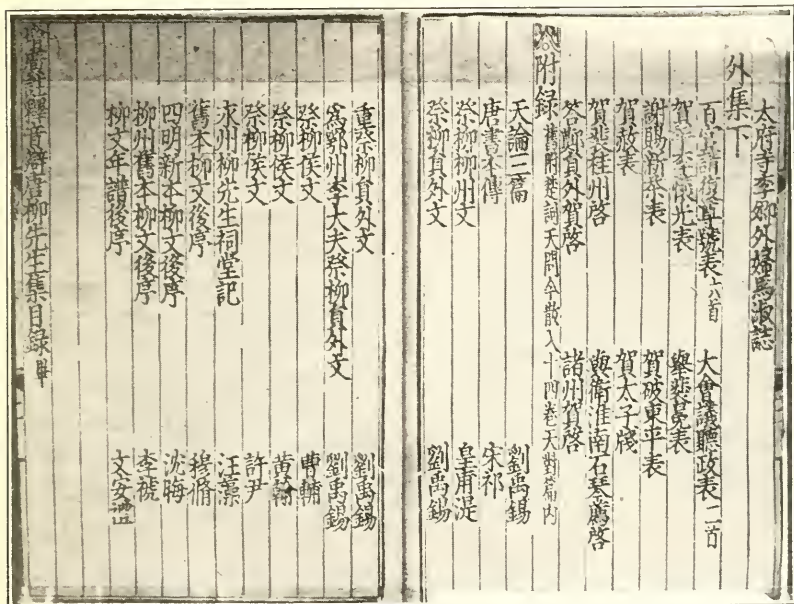 太府寺李卿外婦馬淑誌
外集下
百官請復尊號表六首 大會議聽政表二首
賀平李懷光表 舉裴冕表
謝賜新茶表 賀破東平表
賀赦表 賀太子牋
賀裴桂州啓 與衛淮南石琴薦啓
答鄭員外賀啓 諸州賀啓
附録 舊附楚詞天問今散入十四卷天對篇内
天論三篇 劉禹錫
唐書本傳 宋祁
祭柳柳州文 皇甫湜
祭柳員外文 劉禹錫
重祭柳員外文 劉禹錫
爲鄂州李大夫祭柳員外文 劉禹錫
祭柳侯文 曹輔
祭柳侯文 黄翰
祭柳侯文 許尹
永州柳先生祠堂記 汪藻
舊本柳文後序 穆脩
四明新本柳文後序 沈晦
柳州舊本柳文後序 李褫
柳文年譜後序 文安禮
註釋音辯唐柳先生集目録畢